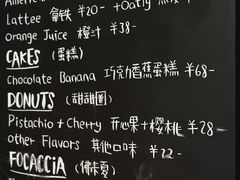 Lattee 拿铁 ¥20- +Oatly
Orange Juice 橙汁 ¥38-
CAKES (蛋糕)
Chocolate Banana 巧克力香蕉蛋糕 ¥68-
DONUTS (甜甜圈)
Pistachio + Cherry 开心果+樱桃 ¥28-
other Flavors 其他口味 ¥22-
FOCACCIA (佛卡夏)